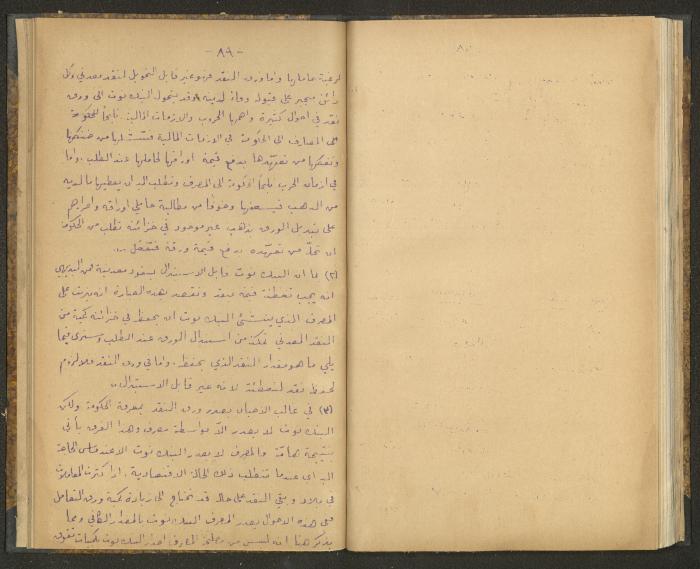 - ٨٩ -
لرغبة حاملها واما ورق النقد فهو غير قابل التحويل لنقد معدني وكل
دائن مجبر على قبوله وفاء لدينه وقد يتحول البنك نوت الى ورق
نقد في احوال كثيرة واهمها الحروب والازمات المالية.
المصارف الى الحكومة في الازمات المالية من
من تعهدها بدفع قيمة اوراقها لحاملها عند الطلب. واما
في ازمان الحرب الحكومة الى المصرف وتطلب اليه ان يعطيها ما لديه
من الذهب وخوفا من مطالبة حاملي اوراقه
على تبديل الورق بذهب غير موجود في خزائنه تطلب من الحكومة
ان من تعهده بدفع قيمة ورقه فتفعل ..
(٢) لما ان البنك نوت قابل الاستبدال بنقود معدنية فمن البديهي
انه يجب تغطئة قيمته بنقد ونقصد بهذه العبارة انه يترتب على
المصرف الذي البنك نوت ان يحفظ في خزائنه كمية من
النقد المعدني من استبدال الورق عند الطلب وسنرى فيما
يلي ما هو مقدار النقد الذي يحفظ. واما في ورق النقد فلا لزوم
لحفظ نقد لتغطئة لانه غير قابل الاستبدال..
(٣) في غالب الاحيان يصدر ورق النقد بمعرفة الحكومة ولكن
البنك نوت لا يصدر الا بواسطة مصرف وهذا الفرق يأتي
بنتيجة هامة والمصرف لا يصدر البنك نوت الا عند الحاجة
اليه اي عندما تتطلب ذلك الحالة الاقتصادية. اذا كثرت المعاملات
في بلاد وبقي النقد على حاله قد نحتاج الى زيادة كمية ورق التعامل
ففي هذه الاحوال يصدر المصرف البنك نوت بالمقدار الكافي ومما
يذكر هنا انه ليس من المصرف اصدار البنك نوت بكميات تفوق